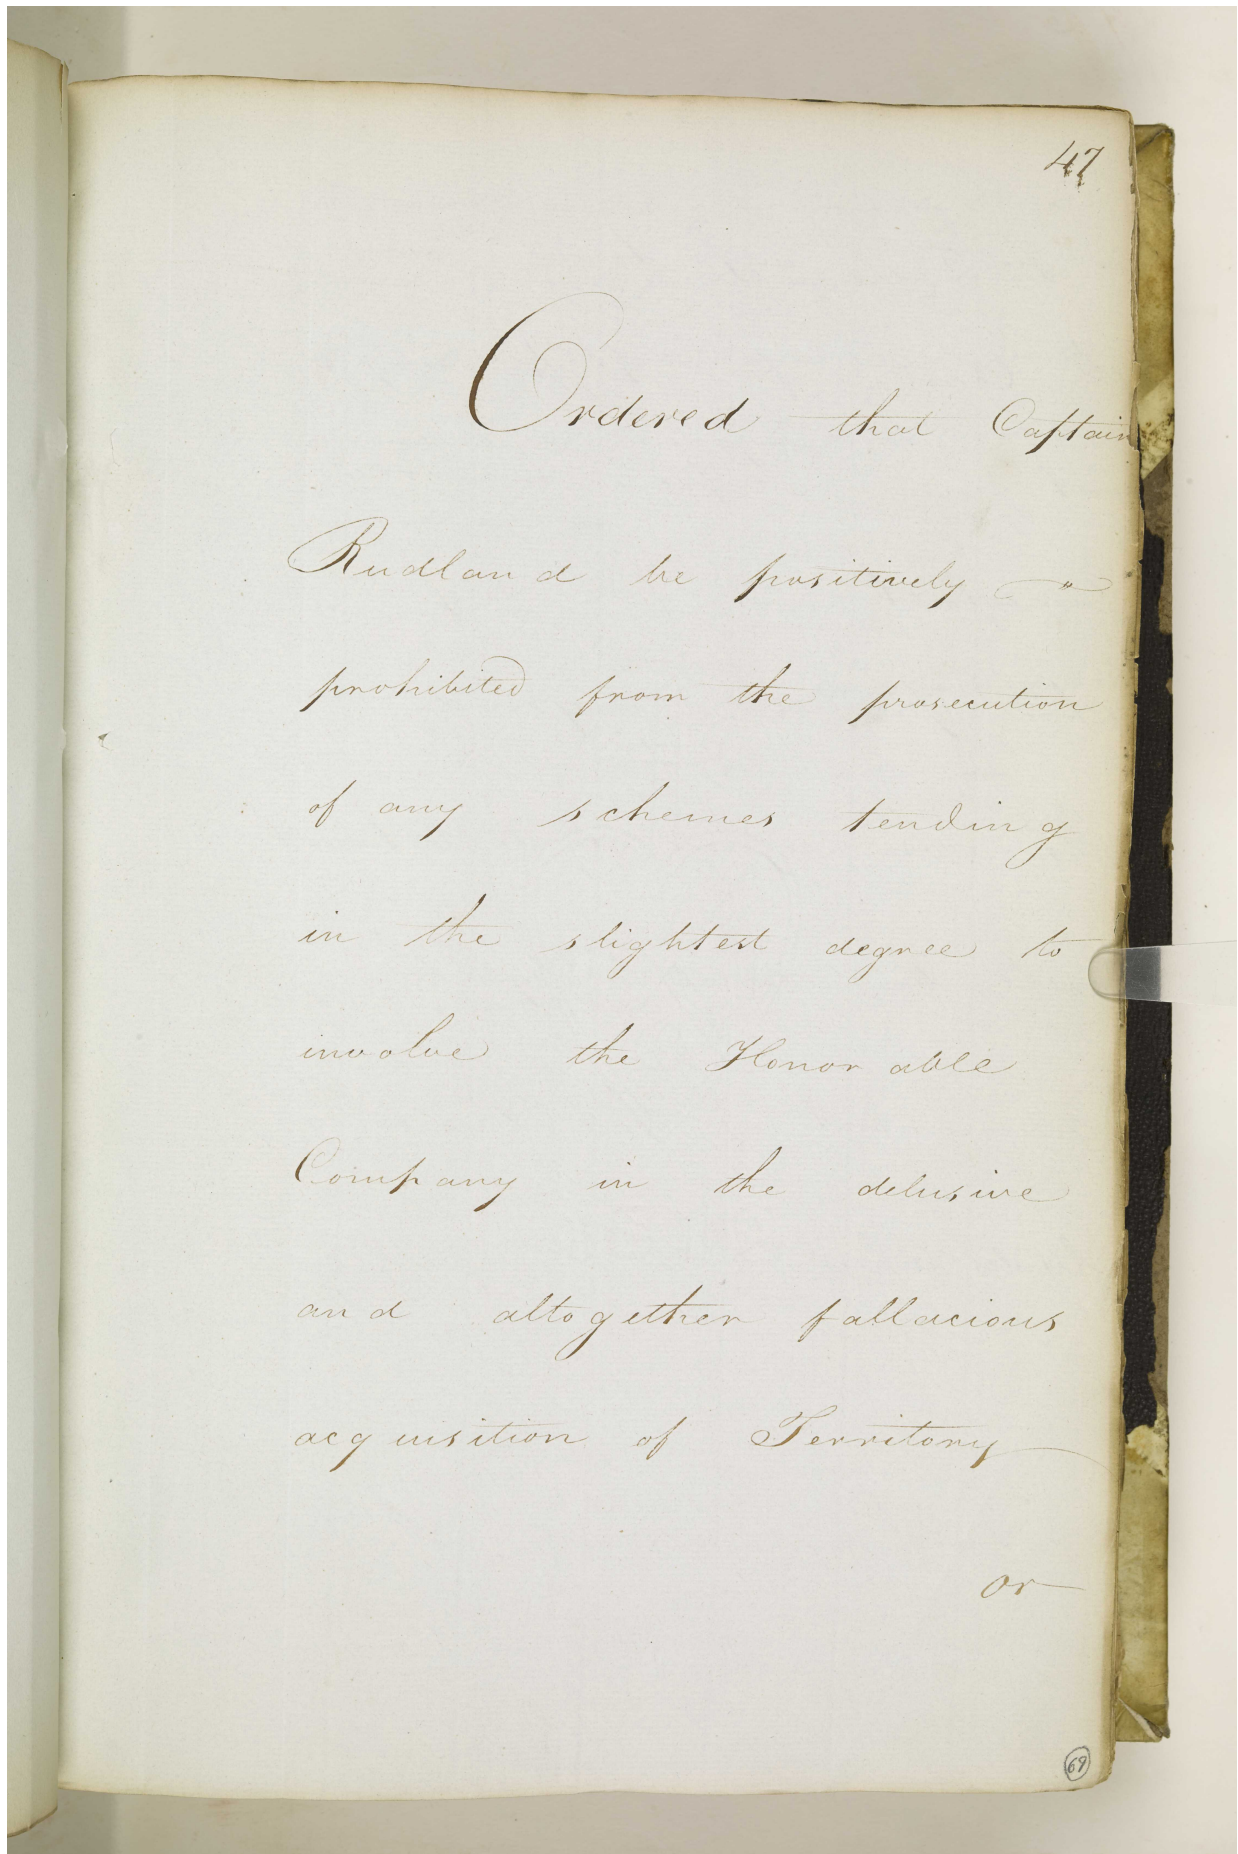 47
Ordered that Captain
Rudland be positively
prohibited from the prosecution
of any schemes tending
in the slightest degree to
involve the Honorable
Company in the delusive
and altogether fallacious
acquisition of Territory
or
69